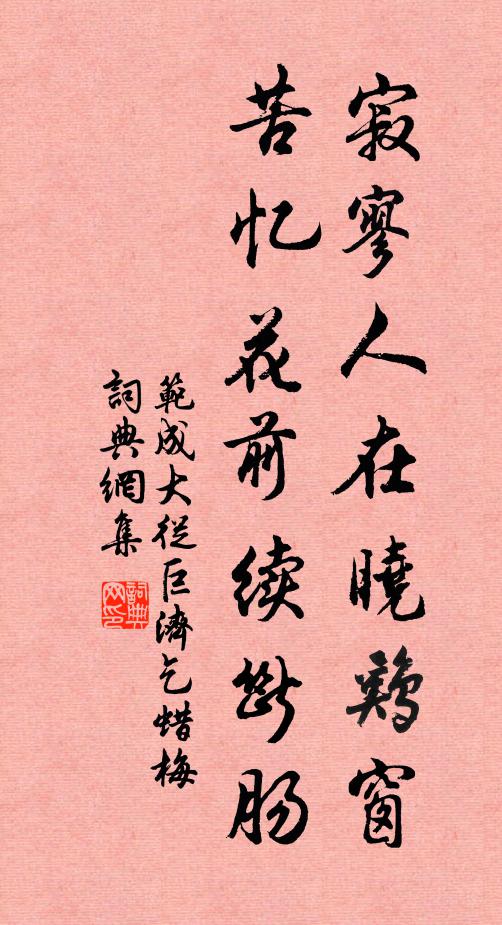 寂寥人在曉鷄窗
苦忆花前續斷肠
範成大從巨濟乞蜡梅
詞典網集
詞典网印